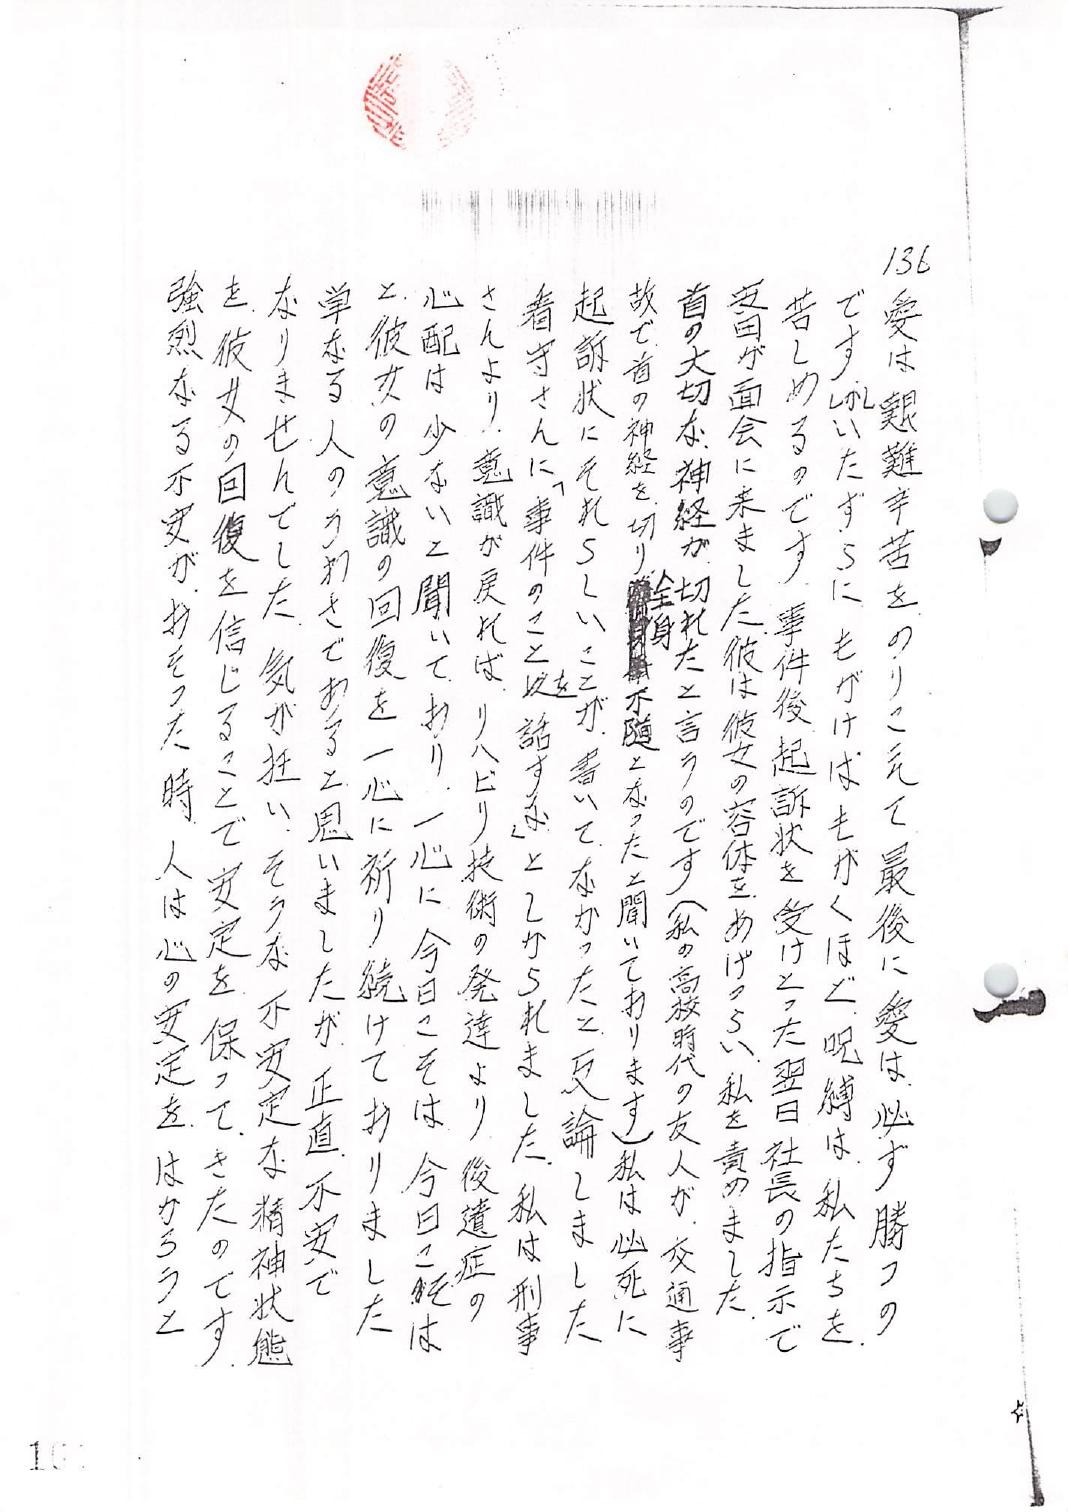 136
愛は艱難辛苦をのりこえて最後に愛は、必ず勝つの
です。しかし、いたずらにもがけばもがくほど、呪縛は、私たちを、
苦しめるのです。事件後起訴状を受けとった翌日社長の指示で
安田が面会に来ました。彼は彼女の容体をあげつらい、私を責めました。
首の大切な、神経が、切れたと言うのです(私の高校時代の友人が、交通事
故で、首の神経を、切り、全身不随となったと聞いております)私は必死に
起訴状にそれらしいことが、書いてなかったと、反論しました
看守さんに、「事件のことを話すな」としかられました。私は刑事
さんより、意識が戻れば、リハビリ技術の発達より後遺症の
心配は少ないと聞いており、一心に今日こそは今日こそは
と、彼女の意識の回復を一心に祈り続けておりました
単なる人のうわさであると思いましたが、正直、不安で
なりませんでした。気が狂い、そうな不安定な精神状態
を、彼女の回復を信じることで安定を、保って、きたのです。
強烈なる不安が、おそった時、人は心の安定を、はかろうと